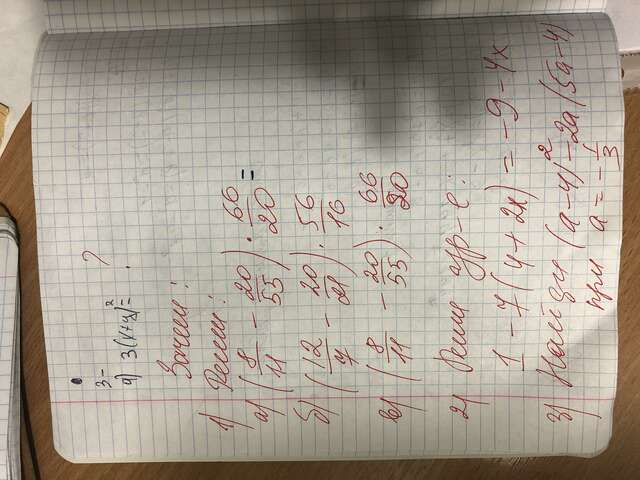 3-
a) 3(x+y)²= ?
Зачет!
1) Реши!
а) (8/11 - 20/55) · 66/20 =
б) (12/7 - 20/21) · 56/16
в) (8/11 - 20/55) · 66/20
2) Реши ур-е:
1 - 7(4+2x) = -9-4x
3) Найди (a-4)² - 2a(5a-4)
при a = -1/3